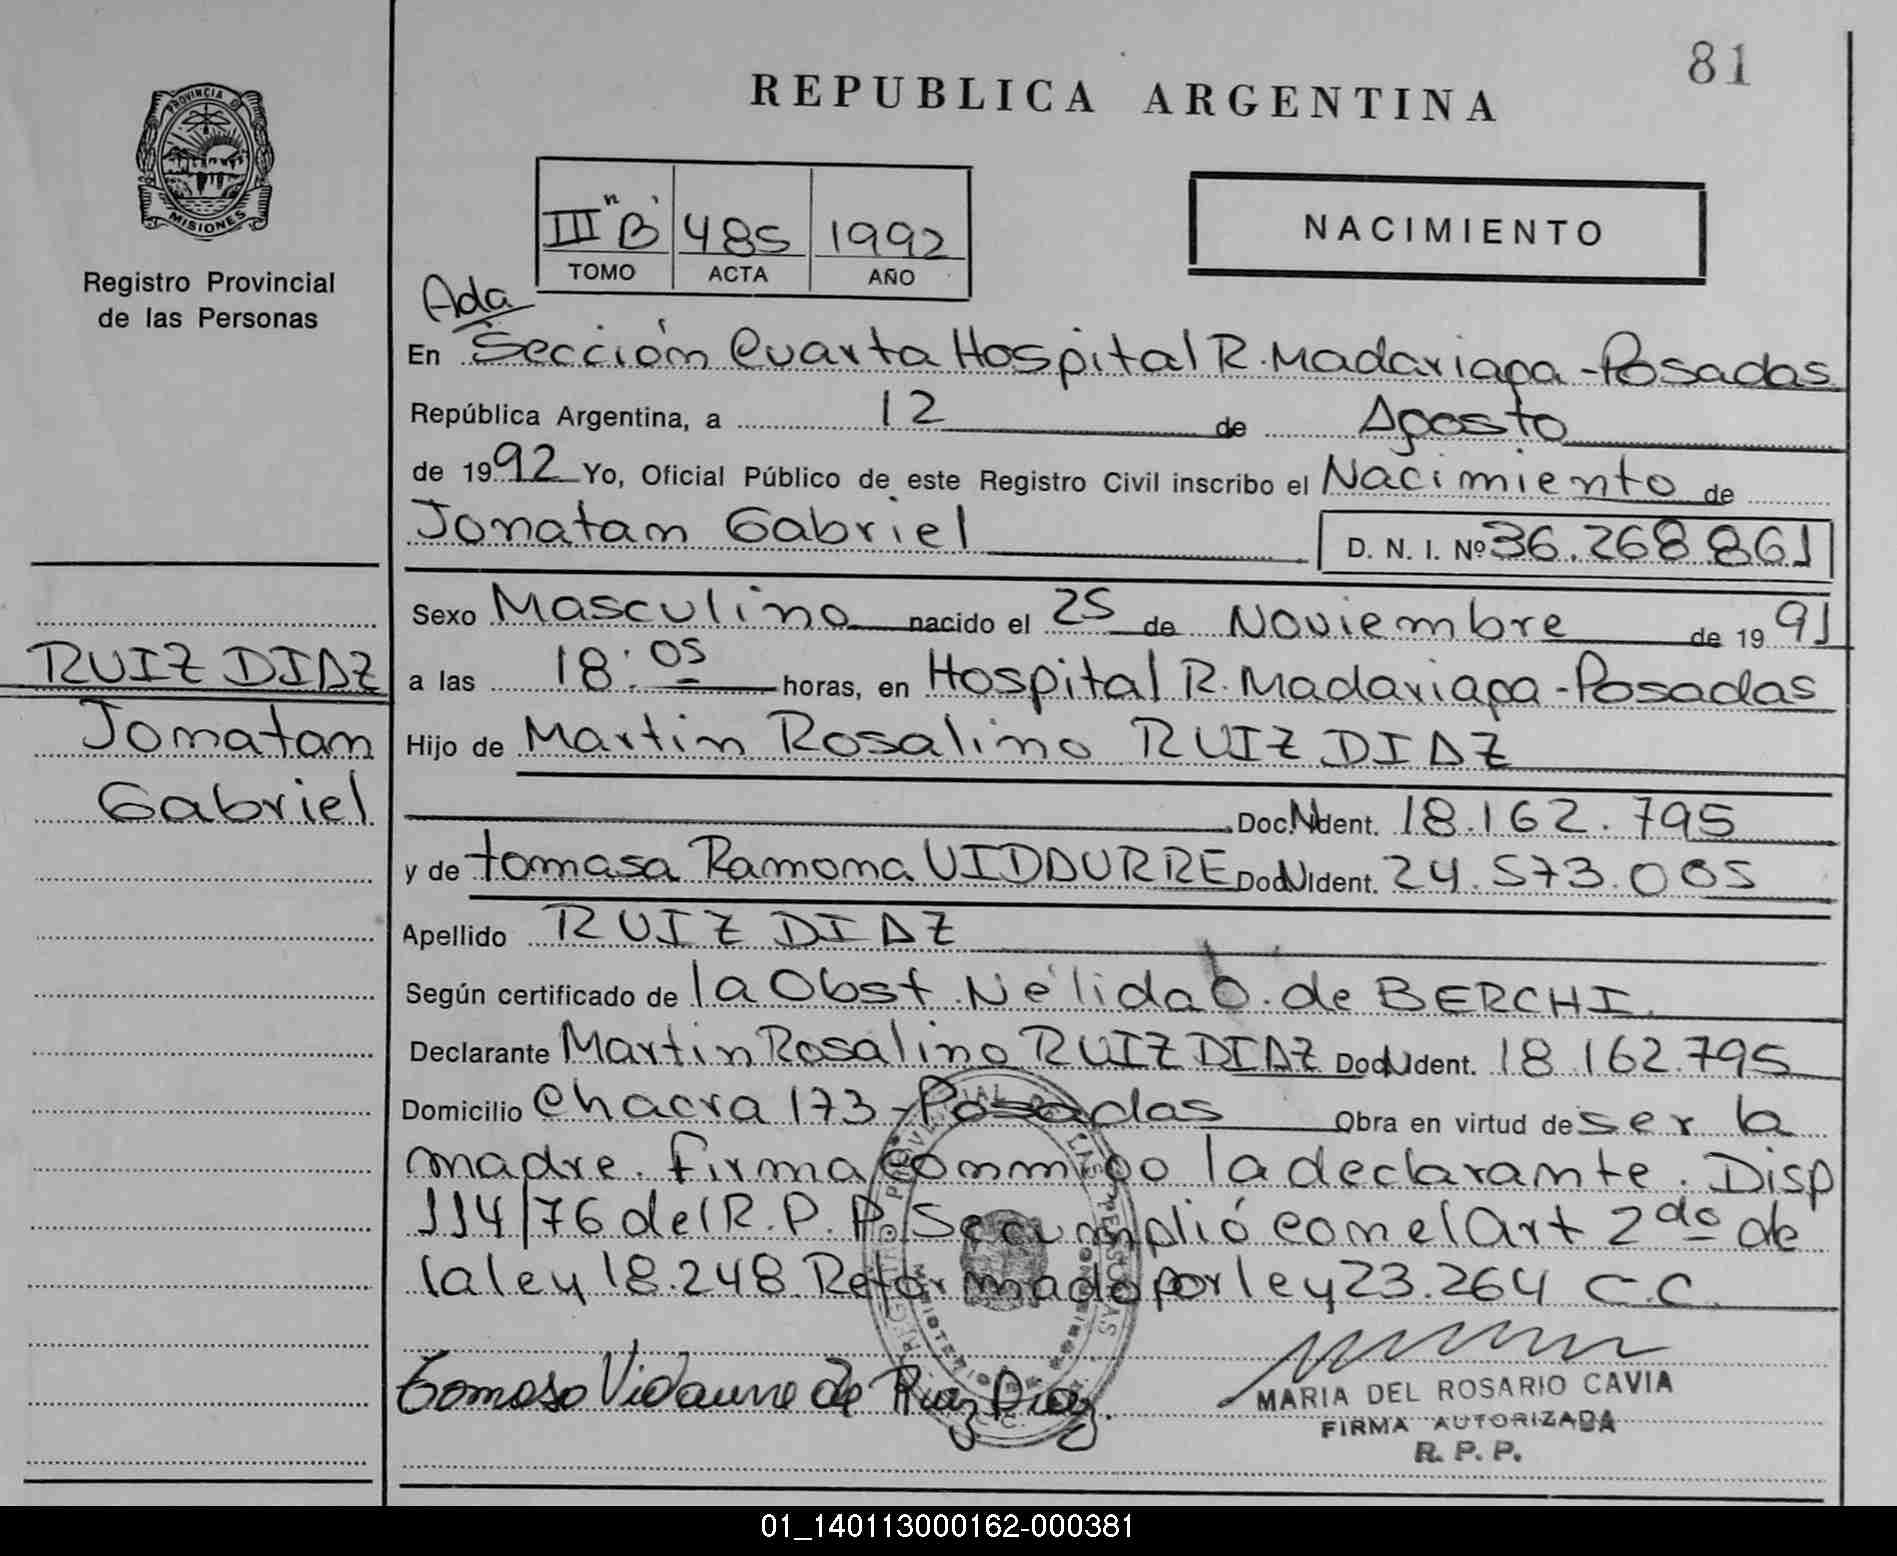 81
REPUBLICA ARGENTINA
PROVINCIA D
MISIONES
Registro Provincial
de las Personas
III "B" 485 1992
TOMO ACTA AÑO
NACIMIENTO
Ada
En Sección Cuarta Hospital R. Madariaga - Posadas
República Argentina, a 12 de Agosto
de 1992 Yo, Oficial Público de este Registro Civil inscribo el Nacimiento de
Jonatan Gabriel D. N. I. Nº 36.268.861
Sexo Masculino nacido el 25 de Noviembre de 1991
a las 18:05 horas, en Hospital R. Madariaga - Posadas
Hijo de Martin Rosalino RUIZ DIAZ
Doc. N Ident. 18.162.795
y de tomasa Ramona VIDAURRE Doc. N Ident. 24.573.005
Apellido RUIZ DIAZ
Según certificado de la Obst. Nélida O. de BERCHI.
Declarante Martin Rosalino RUIZ DIAZ Doc. N Ident. 18.162.795
Domicilio Chacra 173 - Posadas Obra en virtud de ser la
madre. firma conmigo la declarante. Disp
114/76 del R. P. P. Se cumplió con el Art 2do de
la ley 18.248 Reformado por ley 23.264 C.C.
Tomasa Vidaurre de Ruiz Diaz.
MARIA DEL ROSARIO CAVIA
FIRMA AUTORIZADA
R. P. P.
RUIZ DIAZ
Jonatan
Gabriel
01_140113000162-000381